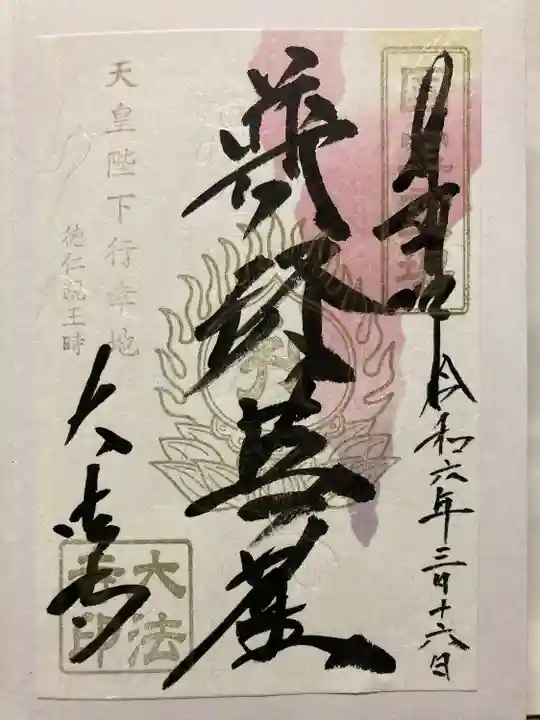 令和六年三月十六日
普賢菩薩
天皇陛下行幸地
徳仁親王時
大法寺
大法寺印